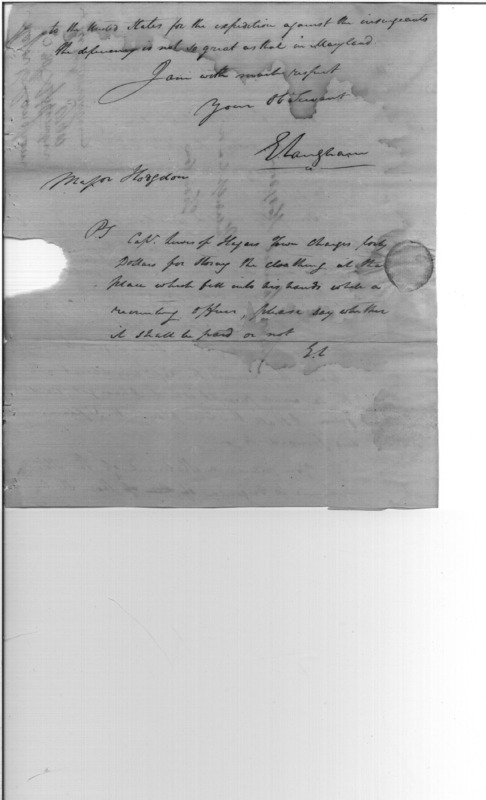 to the United States for the expedition against the insurgents
the deficiency is not so great as that in Maryland.
I am with much respect
Your Ob Servant
E Langham
Major Hodgdon
PS
Capt. Lewis of Hagers Town Charges forty
Dollars for Storing the cloathing at that
place which fell into his hands while a
recruiting officer, please say whether
it shall be paid or not
E. L